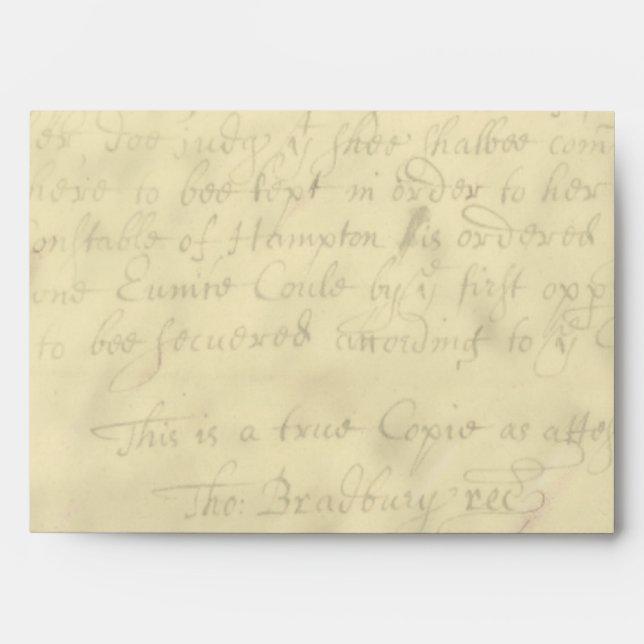 er doe judg yt shee shalbee com
here to bee kept in order to her
onstable of Hampton is ordered
one Eunice Coule by ye first opp
to bee secuered according to ye C
This is a true Copie as attes
Tho: Bradbury rec